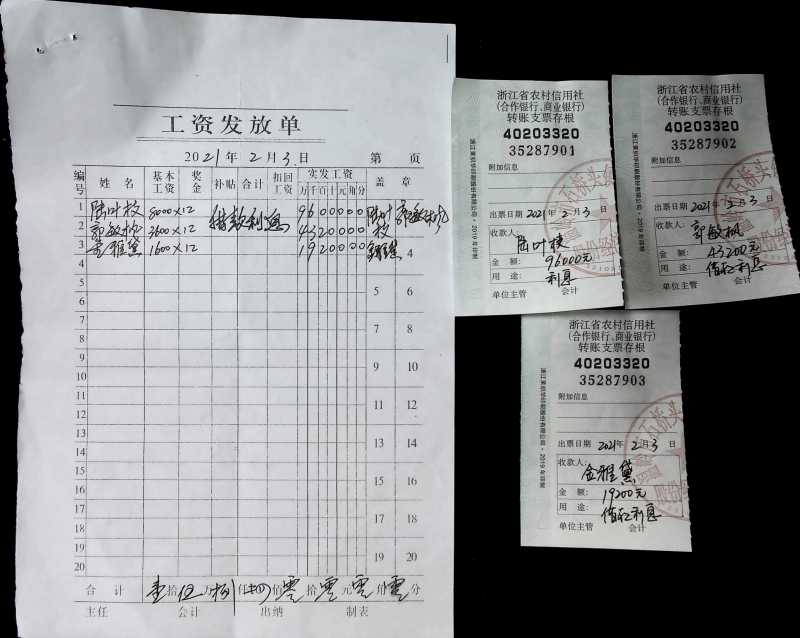 工资发放单
2021年2月3日 第 页
编号 姓名 基本工资 奖金 补贴 合计 扣回工资 实发工资 万千百十元角分 盖章
1 陆叶枝 8000×12 借款利息 9600000
2 郭敏枫 3600×12 4320000
3 金雅黛 1600×12 1920000
4 4
5 5 6
6
7 7 8
8
9 9 10
10
11 11 12
12
13 13 14
14
15 15 16
16
17 17 18
18
19 19 20
20
合计 壹拾伍万捌仟肆佰零拾零元零角零分
主任 会计 出纳 制表
浙江省农村信用社
(合作银行、商业银行)
转账支票存根
40203320
35287901
附加信息
出票日期 2021年2月3日
收款人:
陆叶枝
金额: 96000元
用途: 利息
单位主管 会计
浙江省农村信用社
(合作银行、商业银行)
转账支票存根
40203320
35287902
附加信息
出票日期 2021年2月3日
收款人:
郭敏枫
金额: 43200元
用途: 借款利息
单位主管 会计
浙江省农村信用社
(合作银行、商业银行)
转账支票存根
40203320
35287903
附加信息
出票日期 2021年2月3日
收款人:
金雅黛
金额: 19200元
用途: 借款利息
单位主管 会计